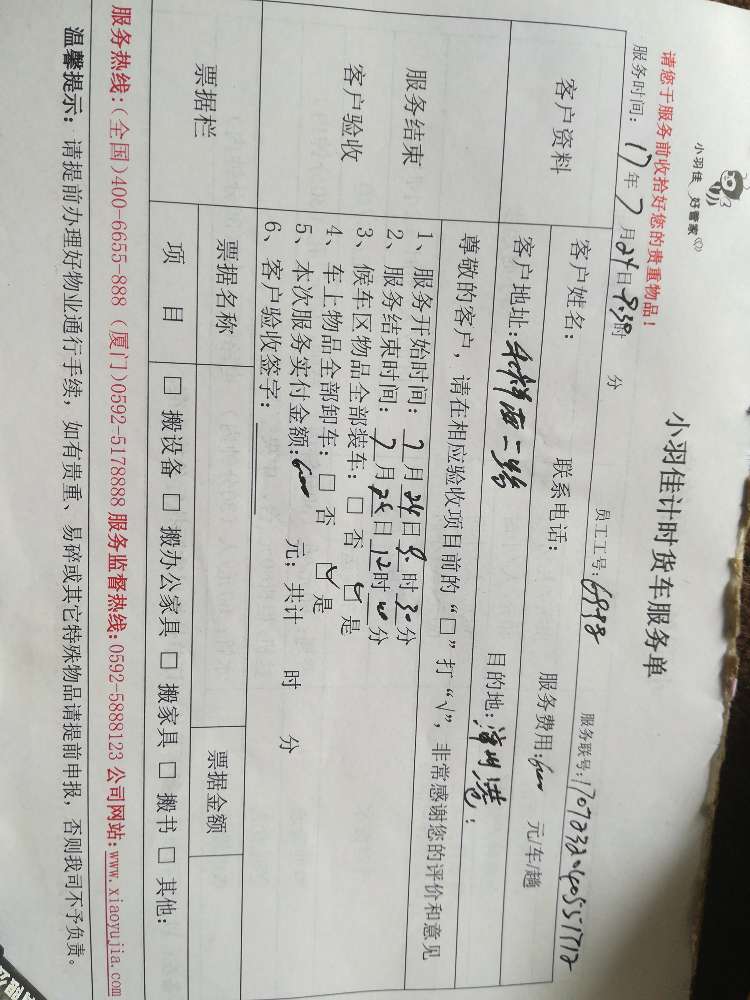 小羽佳 好管家
小羽佳计时货车服务单
请您于服务前收拾好您的贵重物品！
员工工号：6998 服务联号：
服务时间：17年7月24日9:30时 分
客户资料
客户姓名： 联系电话： 服务费用： 元/车/趟
客户地址： 目的地：漳州港
服务结束
客户验收
尊敬的客户，请在相应验收项目前的“□”打“√”，非常感谢您的评价和意见：
1、服务开始时间：7月24日9时30分
2、服务结束时间：7月25日12时00分
3、候车区物品全部装车：□ 否 ☑ 是
4、车上物品全部卸车：□ 否 ☑ 是
5、本次服务实付金额： 元；共计 时 分
6、客户验收签字：
票据栏
票据名称 票据金额
项 目 □ 搬设备 □ 搬办公家具 □ 搬家具 □ 搬书 □ 其他：
服务热线：(全国)400-6655-888 (厦门)0592-5178888 服务监督热线：0592-5888123 公司网站：www.xiaoyujia.com
温馨提示：请提前办理好物业通行手续，如有贵重、易碎或其它特殊物品请提前申报，否则我司不予负责。